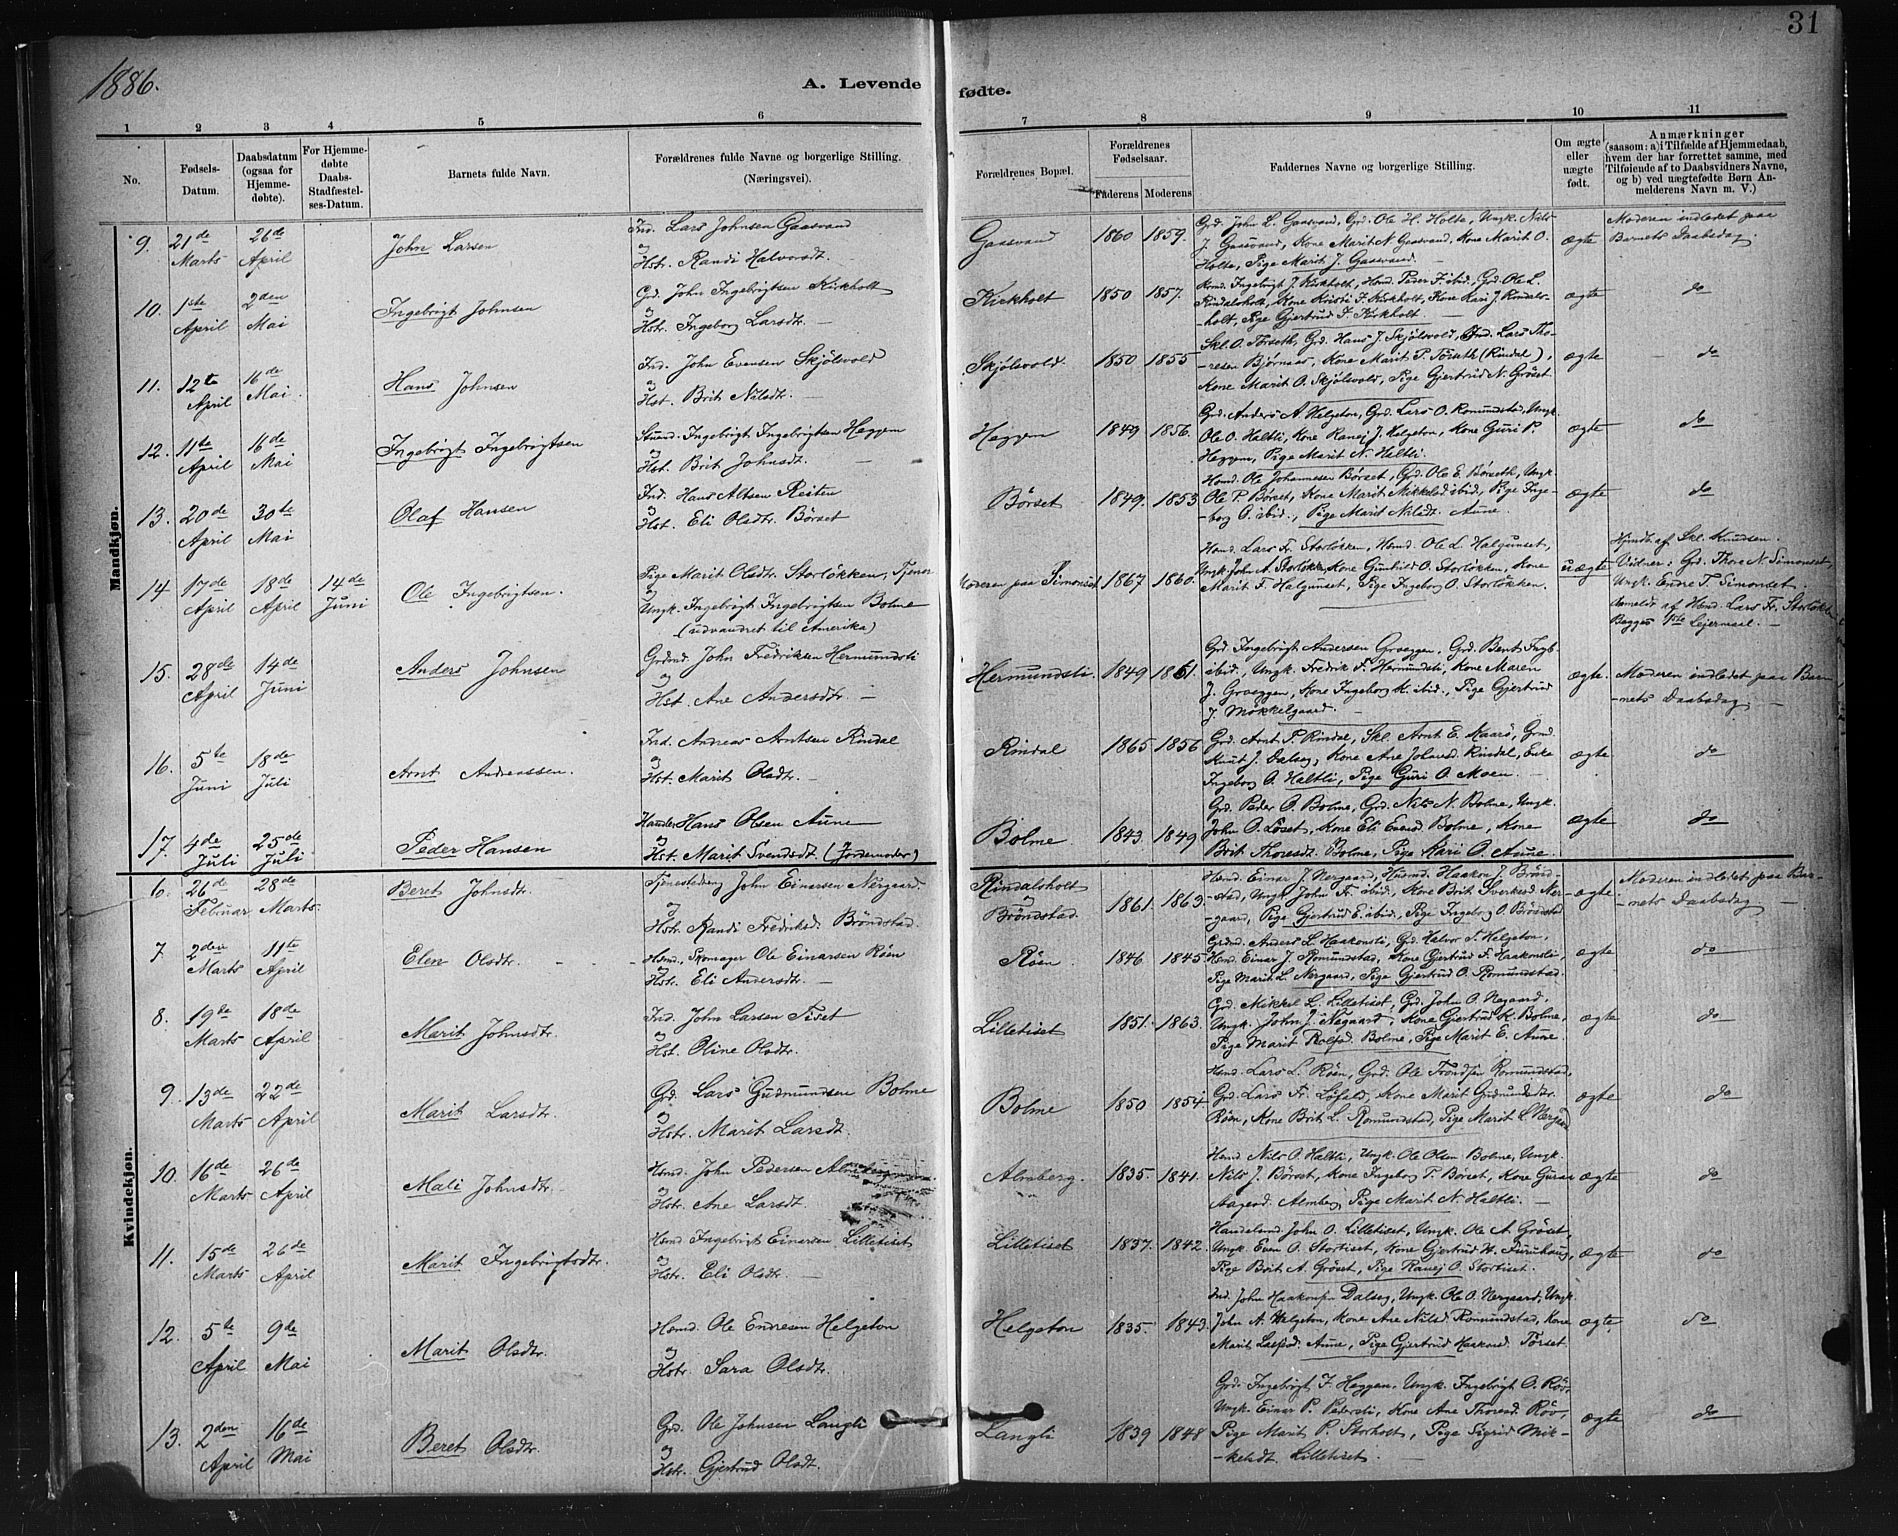 1886.
A. Levende fødte.
31
1 2 3 4 5 6 7 8 9 10 11
No.
Fødsels-Datum.
Daabsdatum (ogsaa for Hjemmedøbte).
For Hjemmedøbte Daabs-Stadfæstelses-Datum.
Barnets fulde Navn.
Forældrenes fulde Navne og borgerlige Stilling. (Næringsvei).
Forældrenes Bopæl.
Forældrenes Fødselsaar.
Faderens Moderens
Faddernes Navne og borgerlige Stilling.
Om ægte eller uægte født.
Anmærkninger
(saasom: a) i Tilfælde af Hjemmedaab,
hvem der har forrettet samme, med
Tilføiende af to Daabsvidners Navne,
og b) ved uægtefødte Børn An-
melderens Navn m. V.)
Mandkjøn.
9. 21de Marts 26de April John Larsen
Ind. Lars Johnsen Gaasvand
og
Hstr. Randi Halvorsdt.
Gaasvand 1860 1859.
Grd. John L. Gaasvand, Grd. Ole H. Holte, Ungk. Nils
J. Gaasvand, Kone Marit N. Gaasvand, Kone Marit O.
Holte, Pige Marit J. Gaasvand.
ægte
Moderen indledet paa
Barnets Daabsdag.
10. 1ste April 2den Mai Ingebrigt Johnsen
Grd. John Ingebrigtsen Kirkholt
og
Hstr. Ingeborg Larsdtr. —
Kirkholt 1850 1857.
Ingebrigt J. Kirkholt, Peder F. ibid. Grd. Ole L.
Rindalsholt, Kone Kristi F. Kirkholt, Kone Kari J. Rindals-
holt, Pige Gjertrud F. Kirkholt —
ægte do
11. 12te April 16de Mai Hans Johnsen
Ind. John Evensen Skjølsvold
og
Hst. Brit Nilsdt. —
Skjølsvold. 1850 1855
Skl. O. Tørseth, Grd. Hans J. Skjølsvold, Lars Tho-
resen Bjørnaas, Kone Marit P. Tørseth (Rindal),
Kone Marit O. Skjølsvold, Pige Gjertrud N. Grøset
ægte — do
12. 11te April 16de Mai Ingebrigt Ingebrigtsen
Ingebrigt Ingebrigtsen Heggem
og
Hst. Brit Johnsdt. —
Heggem 1849 1856.
Grd. Anders A. Helgeton, Grd. Lars O. Romundstad, Ungk.
Ole O. Haltli, Kone Ranej J. Helgeton, Kone Guri P.
Heggem, Pige Marit N. Haltli.
ægte do
13. 20de April 30te Mai Olaf Hansen
Ind. Hans Altsen Reiten
og
Hst. Eli Olsdtr. Børset
Børset 1849. 1853
Hsmd. Ole Johannesen Børset, Grd. Ole E. Børseth, Ungk.
Ole P. Børset, Kone Marit Mikkelsd. ibid., Pige Inge-
borg O. ibid., Pige Marit Nilsdt. Aune.
ægte do
14 17de April 18de April 14de Juni Ole Ingebrigtsen.
Pige Marit Olsdtr. Storløkken, Tjener
og
Ungk. Ingebrigt Ingebrigtsen Bolme
(udvandret til Amerika)
Moderen paa Simonset 1867 1860.
Hsmd. Lars Fr. Storløkken, Hsmd. Ole L. Halgunset,
Ungk. John A. Storløkken, Kone Gunhild O. Storløkken, Kone
Marit F. Halgunset, Pige Ingeborg O. Storløkken.
uægte
Hjmdt. af Skl. Knudsen.
Vidner: Grd. Thore N. Simonset,
Ungk. Endre T. Simonset.
Anmeldt af Hsmd. Lars Fr. Storløkken
Begges 1ste Lejermaal. —
15. 28de April 14de Juni Anders Johnsen
John Fredriksen Hermundsli
og
Hst. Ane Andersdtr. —
Hermundsli 1849 1861.
Grd. Ingebrigt Andersen Groeggen, Grd. Bent Ingb.
ibid., Ungk. Fredrik F. Hermundsli, Kone Maren
J. Groeggen, Kone Ingeborg K. ibid., Pige Gjertrud
J. Møkkelgaard. —
ægte.
Moderen indledet paa Bar-
nets Daabsdag —
16. 5te Juni 18de Juli Arnt Andreassen.
Ind. Andreas Arntsen Rindal
og
Hst. Marit Olsdtr. —
Rindal 1865 1856
Grd. Arnt P. Rindal, Skl. Arnt E. Kaarø,
Knut J. Dalseg, Kone Ane Johansd. Rindal, Enke
Ingeborg O. Haltli, Pige Guri O. Moen. —
ægte do
17. 4de Juli 25de Juli Peder Hansen
Hans Olsen Aune
og
Hst. Marit Svendsdt. (Jordemoder)
Bolme 1843. 1849
Grd. Peder O. Bolme, Grd. Nils N. Bolme, Ungk.
John O. Løset, Kone Eli Evensd. Bolme, Kone
Brit Thoresdt. Bolme, Pige Kari O. Aune.
ægte do
Kvindekjøn.
6. 26de Februar 28de Marts. Beret Johnsdtr.
John Einarsen Nergaard
og
Hstr. Randi Fredriksd. Brøndstad.
Rindalsholt
og
Brøndstad. 1861. 1863.
Hsmd. Einar J. Nergaard, Husmd. Haakon J. Brønd-
stad, Ungk. John Fr. ibid., Kone Brit Sverkesd. Ner-
gaard, Pige Gjertrud E. ibid., Pige Ingeborg O. Brøndstad
ægte
Moderen indledet paa Bar-
nets Daabsdag —
7. 2den Marts 11te April Elen Olsdtr.
Hsmd., Skomager Ole Einarsen Røen
og
Hst. Eli Andersdtr. —
Røen 1846. 1845
Anders L. Haakonsli, Grd. Halvor T. Helgeton,
Hsmd. Einar J. Romundstad, Kone Gjertrud F. Haakonsli,
Pige Marit L. Nergaard, Pige Gjertrud O. Romundstad.
ægte do
8. 19de Marts 18de April Marit Johnsdtr.
Ind. John Larsen Tiset
og
Hst. Oline Olsdtr.
Lilletiset 1851. 1863.
Grd. Mikkel L. Lilletiset, Grd. John O. Nøgaard,
Ungk. John J. Nøgaard, Kone Gjertrud K. Bolme,
Pige Marit Rolfsd. Bolme, Pige Marit E. Aune.
ægte do
9. 13de Marts 22de April Marit Larsdtr.
Grd. Lars Gudmundsen Bolme
og
Hstr. Marit Larsdt.
Bolme 1850 1854.
Hsmd. Lars L. Røen, Grd. Ole Trondsen Romundstad,
Grd. Lars Fr. Løfald, Kone Marit Gudmundsdtr.
Røen, Kone Brit L. Romundstad, Pige Marit L. Nergaard
ægte do
10. 16de Marts 26de April Mali Johnsdtr.
Hsmd. John Pedersen Almberg
og
Hstr. Ane Larsdt.
Almberg. 1835. 1841.
Hsmd. Nils O. Haltli, Ungk. Ole Olsen Bolme, Ungk.
Nils J. Børset, Kone Ingeborg T. Børset, Kone Guru
Almberg, Pige Marit N. Haltli. —
ægte do
11. 15de Marts 26de April Marit Ingebrigtsdtr.
Hsmd. Ingebrigt Einarsen Lilletiset
og
Hstr. Eli Olsdtr. —
Lilletiset 1837. 1842.
Handelsmd. John O. Lilletiset, Ungk. Ole A. Grøset,
Ungk. Even O. Stortiset, Kone Gjertrud H. Furuhaug,
Pige Brit A. Grøset, Pige Ranej O. Stortiset.
ægte do
12. 5te April 9de Mai Marit Olsdtr.
Hsmd. Ole Endresen Helgeton
og
Hstr. Sara Olsdtr.
Helgeton 1835. 1843.
Ind. John Haakonsen Dalseg, Ungk. Ole O. Nergaard, Ungk.
John A. Helgeton, Kone Ane Nilsd. Romundstad, Kone
Marit Aune, Pige Gjertrud Haakonsd. Tørset.
ægte do
13. 2den April 16de Mai Beret Olsdtr.
Grd. Ole Johnsen Langli
og
Hstr. Gjertrud Olsdt.
Langli 1839 1848
Grd. Ingebrigt F. Heggem, Ungk. Ingebrigt O. Røv,
Ungk. Einar P. Pedersli, Kone Ane Thoresd. Røv,
Pige Marit P. Storholt, Pige Sigrid Mik-
kelsdt. Lilletiset. —
ægte do